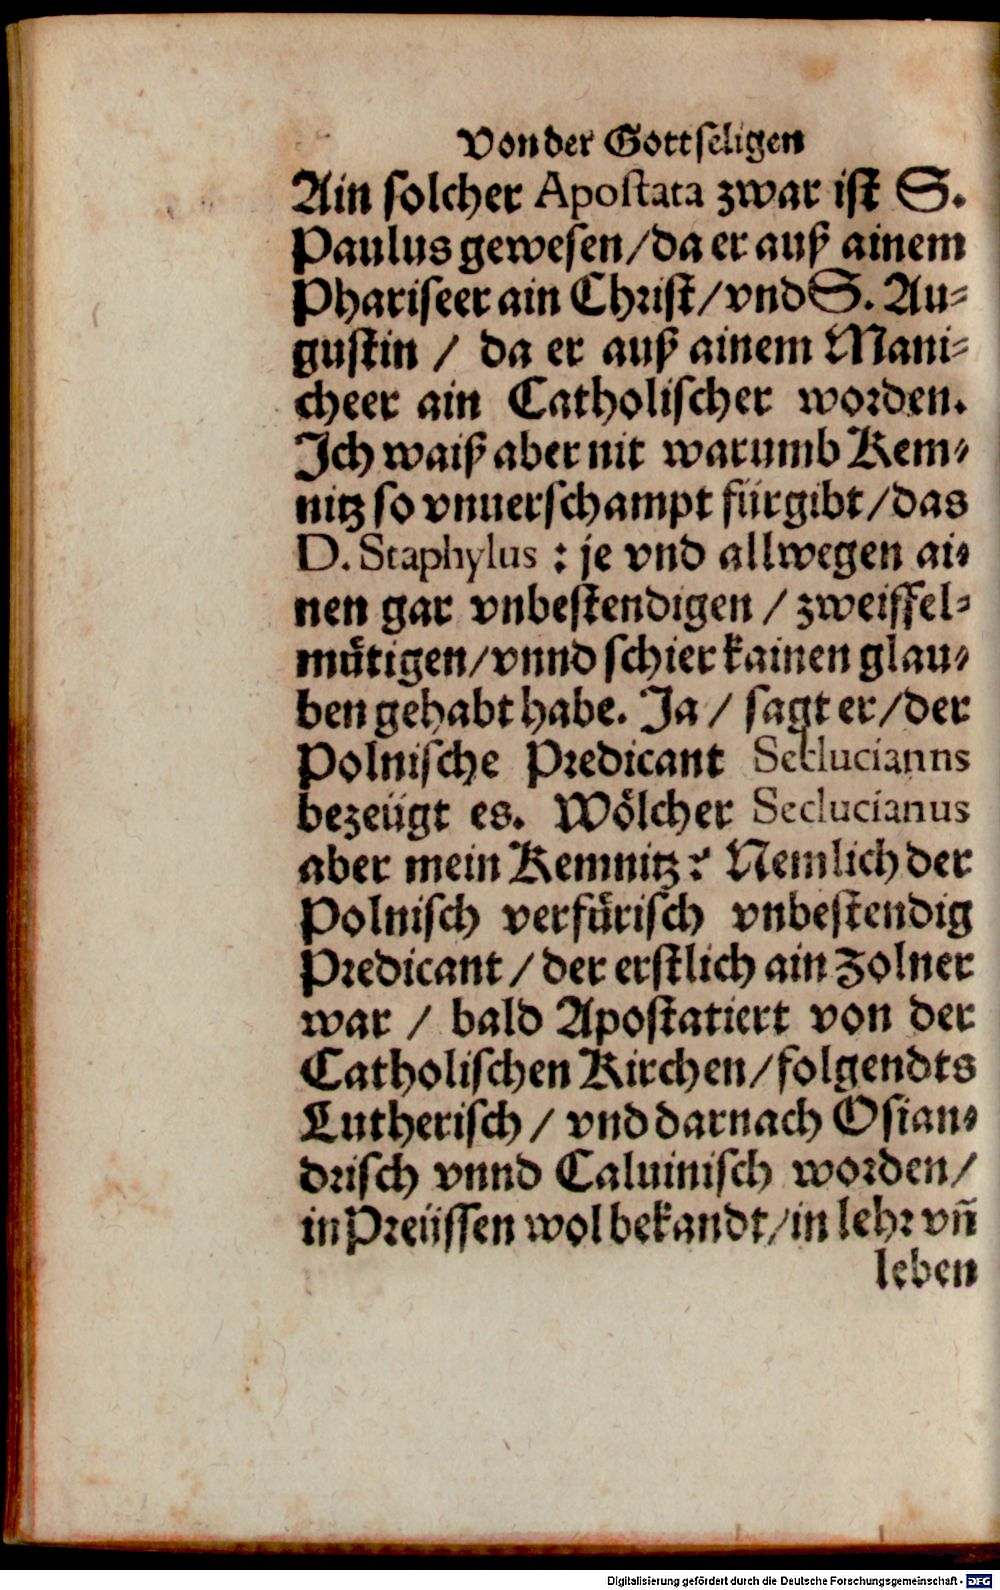 Von der Gottseligen
Ain solcher Apostata zwar ist S.
Paulus gewesen/da er auß ainem
Phariseer ain Christ/vnd S. Au-
gustin / da er auß ainem Mani-
cheer ain Catholischer worden.
Ich waiß aber nit warumb Kem-
nitz so vnuerschampt fürgibt/das
D. Staphylus : je vnd allwegen ai-
nen gar vnbestendigen / zweiffel-
mütigen/vnnd schier kainen glau-
ben gehabt habe. Ja / sagt er/der
Polnische Predicant Seclucianns
bezeügt es. Wölcher Seclucianus
aber mein Kemnitz? Nemlich der
Polnisch verfürisch vnbestendig
Predicant / der erstlich ain Zolner
war / bald Apostatiert von der
Catholischen Kirchen/folgendts
Lutherisch / vnd darnach Osian-
drisch vnnd Caluinisch worden/
in Preüssen wol bekandt/in lehr vñ
leben
Digitalisierung gefördert durch die Deutsche Forschungsgemeinschaft - DFG